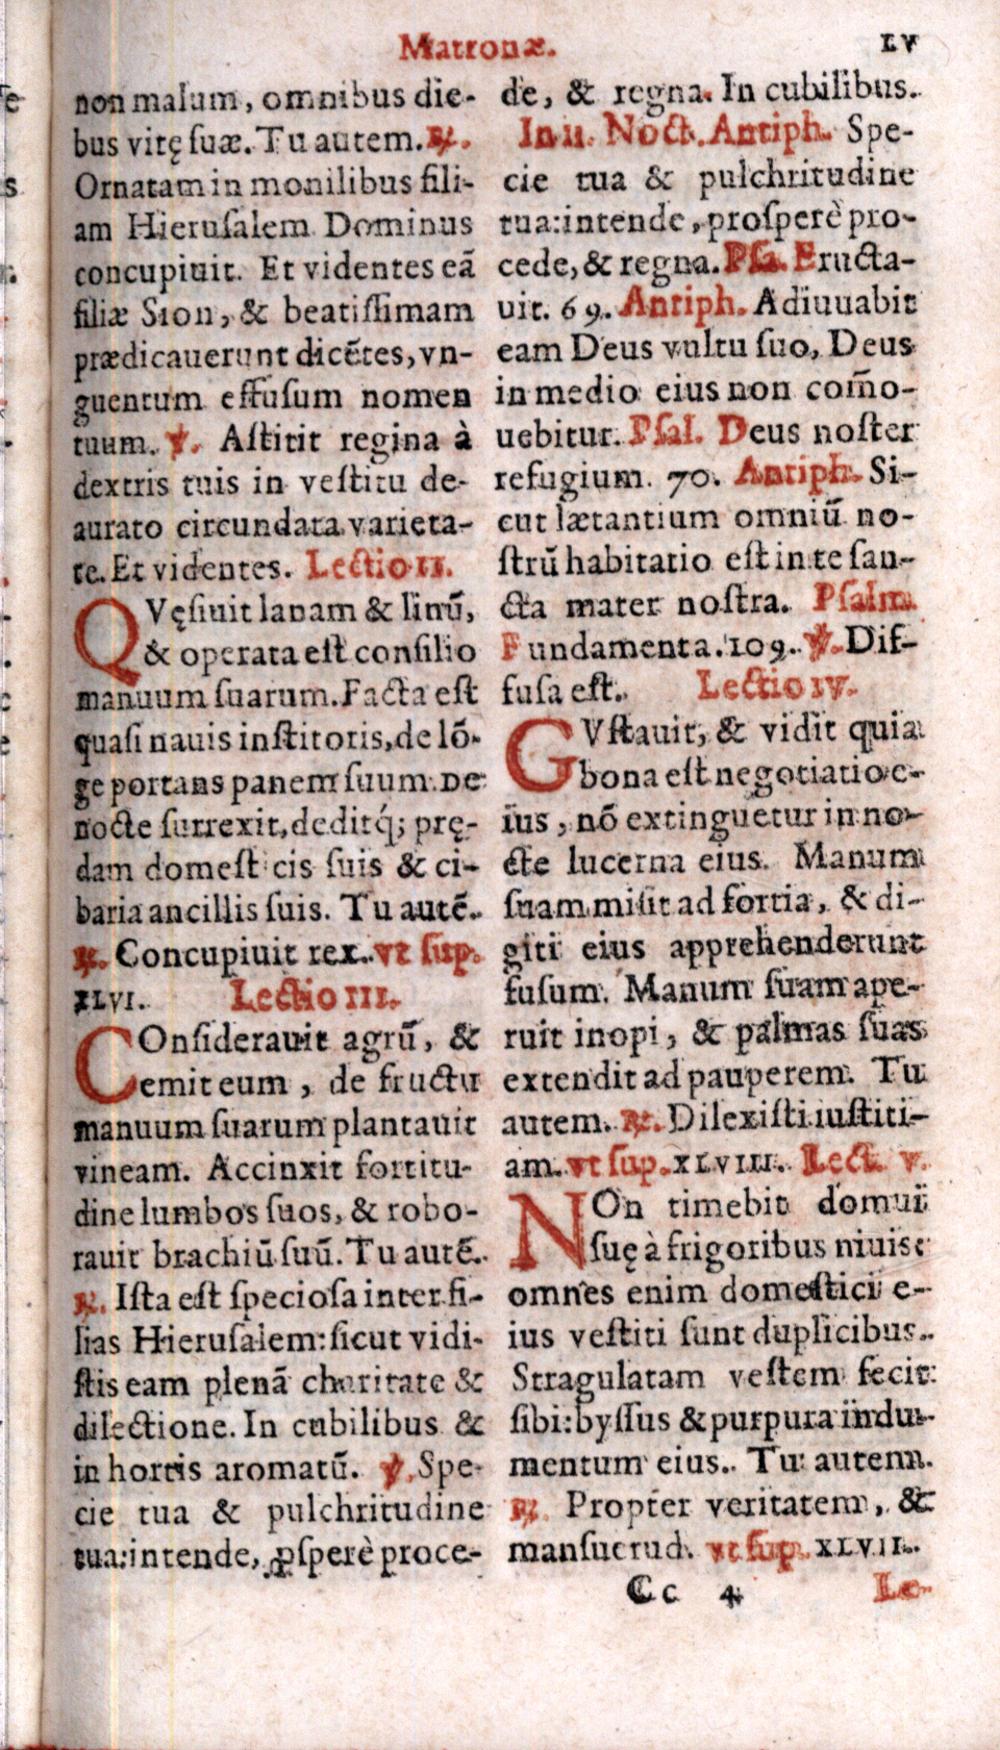 Matronæ. LV
non malum, omnibus die-
bus vitę ſuæ. Tu autem. ℟.
Ornatam in monilibus fili-
am Hieruſalem Dominus
concupiuit. Et videntes eã
filiæ Sion, & beatiſſimam
prædicauerunt dicẽtes, vn-
guentum effuſum nomen
tuum. ℣. Aſtitit regina à
dextris tuis in veſtitu de-
aurato circundata varieta-
te. Et videntes. Lectio II.
QVęſiuit lanam & linũ,
& operata eſt conſilio
manuum ſuarum. Facta eſt
quaſi nauis inſtitoris, de lõ-
ge portans panem ſuum. De
nocte ſurrexit, deditq́; prę-
dam domeſticis ſuis & ci-
baria ancillis ſuis. Tu autẽ.
℟. Concupiuit rex. vt ſup.
XLVI. Lectio III.
COnſiderauit agrũ, &
emit eum, de fructu
manuum ſuarum plantauit
vineam. Accinxit fortitu-
dine lumbos ſuos, & robo-
rauit brachiũ ſuũ. Tu autẽ.
℟. Iſta eſt ſpecioſa inter fi-
lias Hieruſalem: ſicut vidi-
ſtis eam plenã charitate &
dilectione. In cubilibus &
in hortis aromatũ. ℣. Spe-
cie tua & pulchritudine
tua: intende, ꝓſperè proce-
de, & regna. In cubilibus.
In II. Noct. Antiph. Spe-
cie tua & pulchritudine
tua: intende, proſperè pro-
cede, & regna. Pſa. Eructa-
uit. 69. Antiph. Adiuuabit
eam Deus vultu ſuo, Deus
in medio eius non com̃o-
uebitur. Pſal. Deus noſter
refugium. 70. Antiph. Si-
cut lætantium omniũ no-
ſtrũ habitatio eſt in te ſan-
cta mater noſtra. Pſalm.
Fundamenta. 109. ℣. Dif-
fuſa eſt. Lectio IV.
GVſtauit, & vidit quia
bona eſt negotiatio e-
ius, nõ extinguetur in no-
cte lucerna eius. Manum
ſuam miſit ad fortia, & di-
giti eius apprehenderunt
fuſum. Manum ſuam ape-
ruit inopi, & palmas ſuas
extendit ad pauperem. Tu
autem. ℟. Dilexiſti iuſtiti-
am. vt ſup. XLVIII. Lect. V.
NOn timebit domui
ſuę à frigoribus niuis:
omnes enim domeſtici e-
ius veſtiti ſunt duplicibus.
Stragulatam veſtem fecit
ſibi: byſſus & purpura indu-
mentum eius. Tu autem.
℟. Propter veritatem, &
manſuetud. vt ſup. XLVII.
Cc 4 Le-